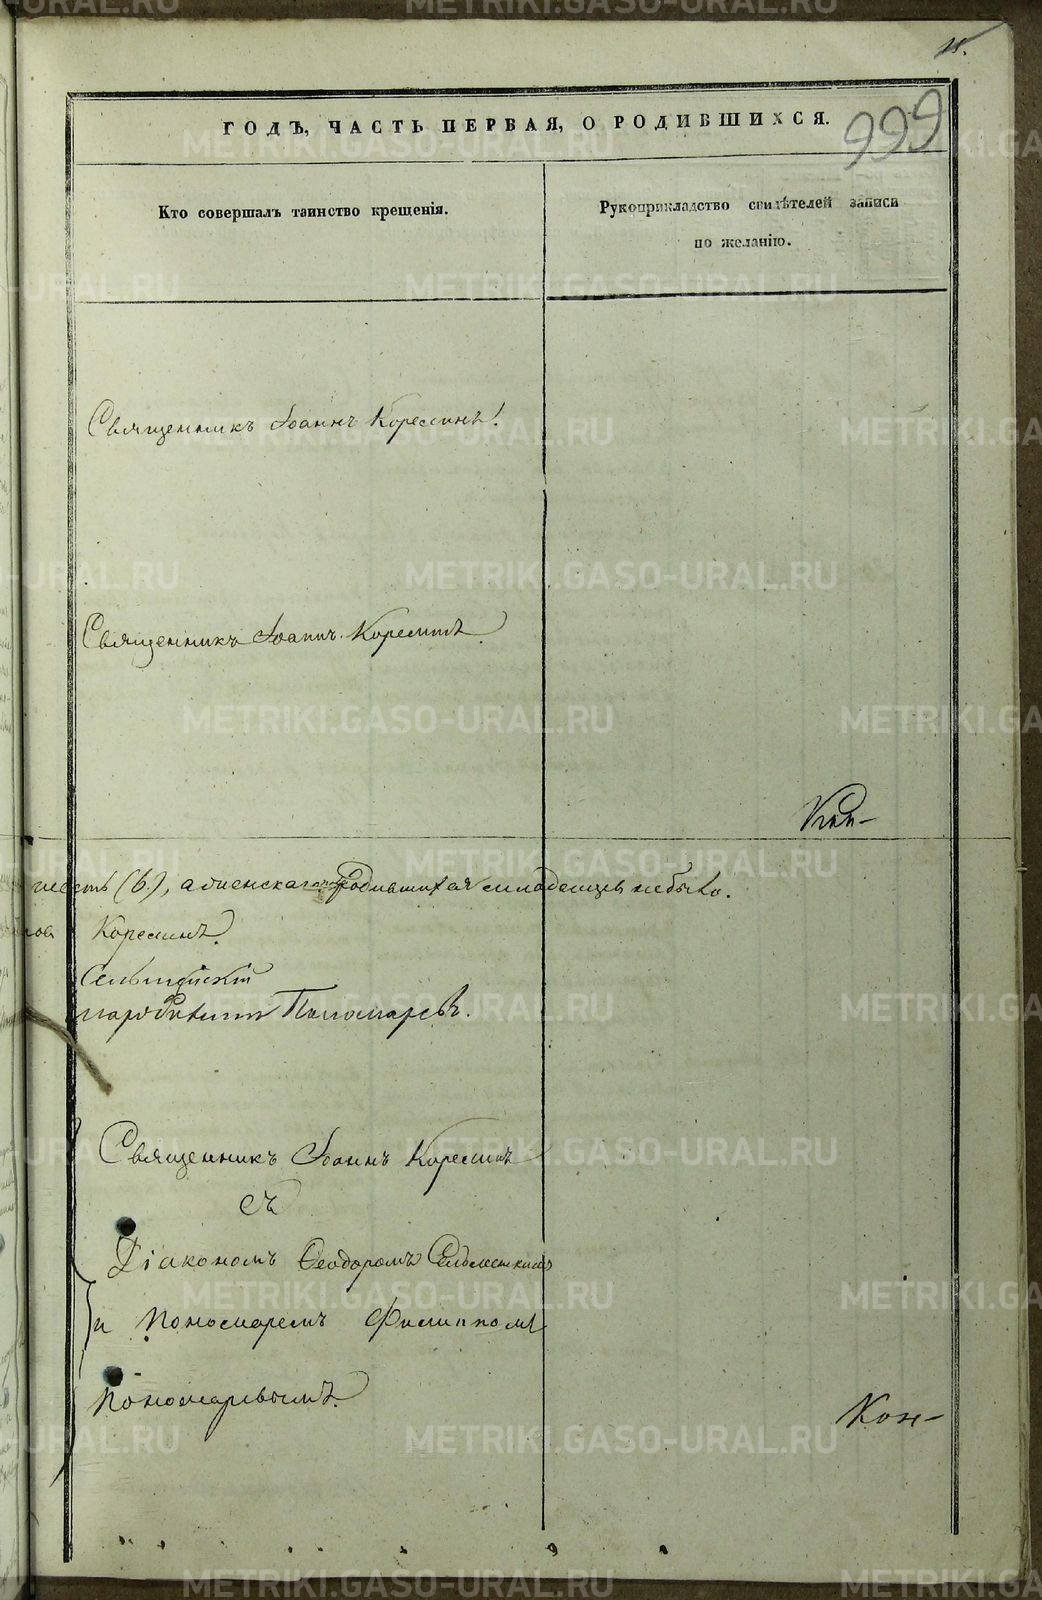 ГОДЪ, ЧАСТЬ ПЕРВАЯ, О РОДИВШИХСЯ.
999
Кто совершалъ таинство крещенія.
Рукоприкладство свидѣтелей записи
по желанію.
Священникъ Іоаннъ Корелинъ.
Священникъ Іоаннъ Корелинъ.
шесть (6.), а женска родившихся младенцев небыло.
Корелинъ.
Пономаревъ.
Священникъ Іоаннъ Корелинъ
съ
Діакономъ Ѳеодоромъ
и Пономаремъ Филиппомъ
Пономаревымъ.
Кон-
METRIKI.GASO-URAL.RU